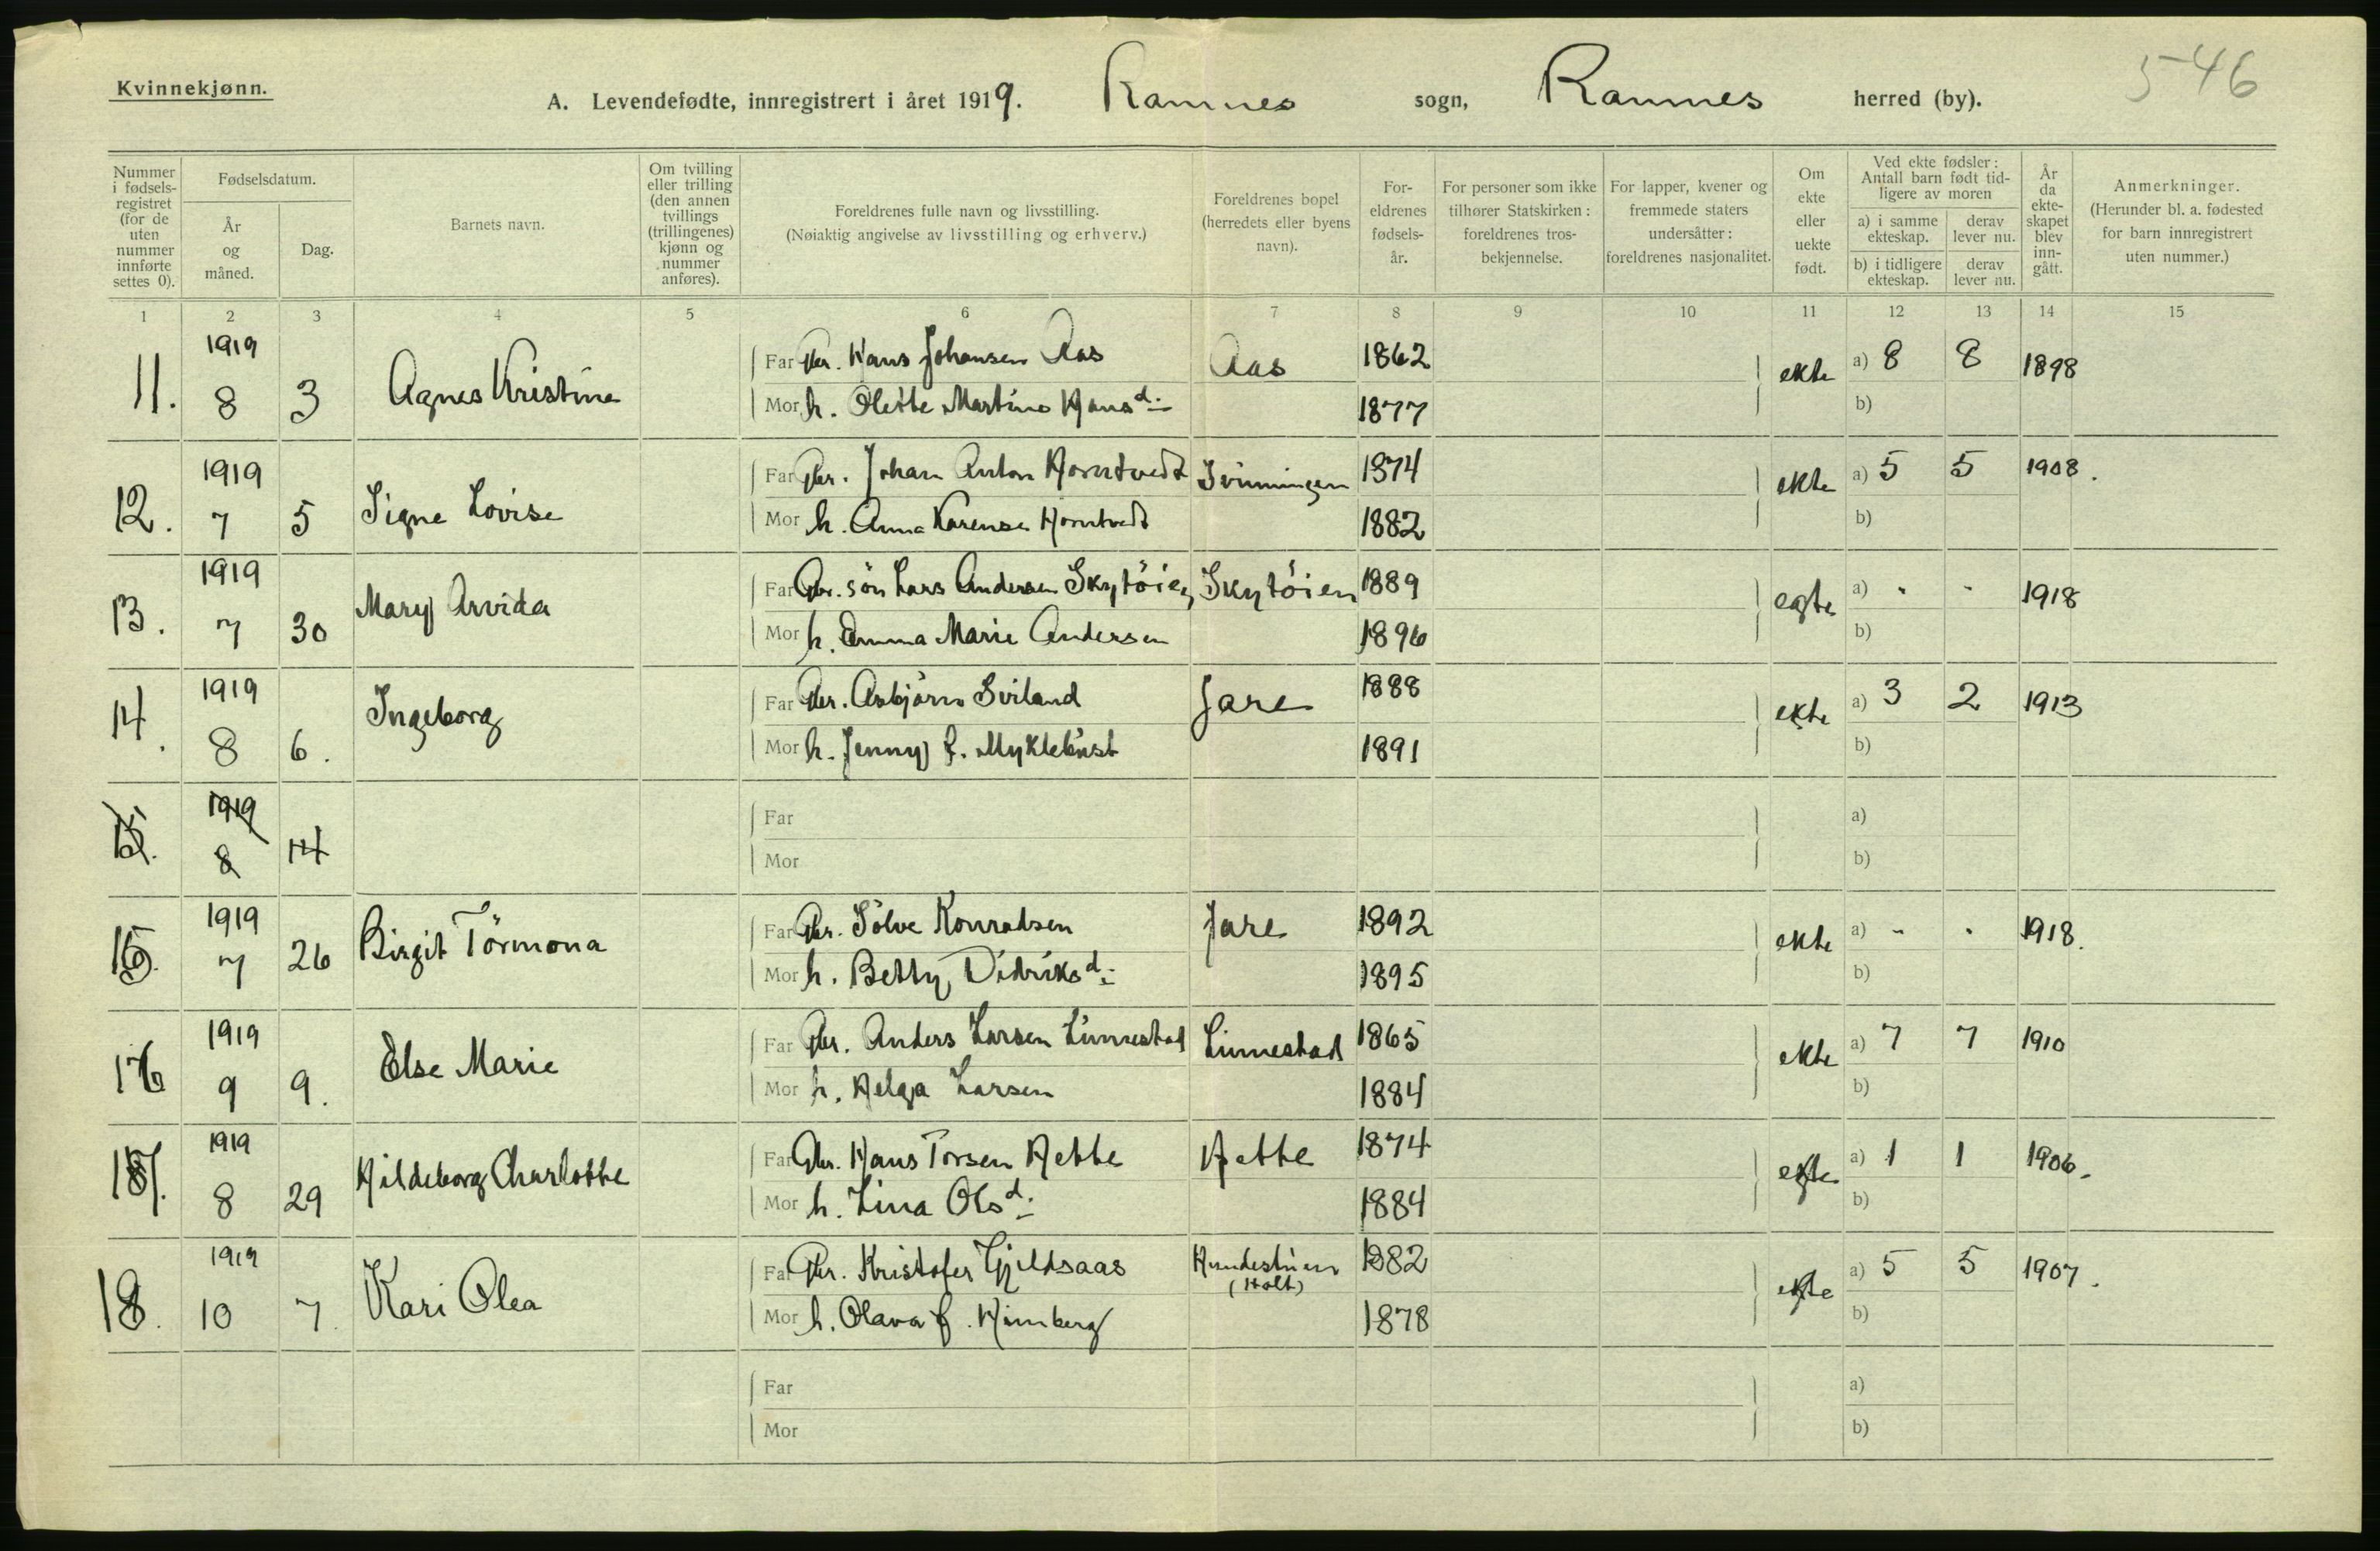 Kvinnekjønn.
A. Levendefødte, innregistrert i året 1919. Ramnes sogn, Ramnes herred (by).
546
Nummer i fødsels-registret (for de uten nummer innførte settes 0).
Fødselsdatum.
År og måned.
Dag.
Barnets navn.
Om tvilling eller trilling (den annen tvillings (trillingenes) kjønn og nummer anføres).
Foreldrenes fulle navn og livsstilling.
(Nøiaktig angivelse av livsstilling og erhverv.)
Foreldrenes bopel (herredets eller byens navn).
For-eldrenes fødsels-år.
For personer som ikke tilhører Statskirken: foreldrenes tros-bekjennelse.
For lapper, kvener og fremmede staters undersåtter: foreldrenes nasjonalitet.
Om ekte eller uekte født.
Ved ekte fødsler: Antall barn født tid-ligere av moren
a) i samme ekteskap.
derav lever nu.
b) i tidligere ekteskap.
derav lever nu.
År da ekte-skapet blev inn-gått.
Anmerkninger.
(Herunder bl. a. fødested for barn innregistrert uten nummer.)
1 2 3 4 5 6 7 8 9 10 11 12 13 14 15
11. 1919 8 3 Agnes Kristine Far Gbr. Hans Johansen Aas Aas 1862 ekte a) 8 8 1898
Mor h. Olette Martine Hansd: 1877 b)
12. 1919 7 5 Signe Lovise Far Gbr. Johan Anton Horntvedt Svinningen 1874 ekte a) 5 5 1908.
Mor h. Anna Karense Horntvedt 1882 b)
13. 1919 7 30 Mary Arvida Far Gbr. sön Lars Andersen Skytöien Skytöien 1889 egte a) - - 1918
Mor h. Emma Marie Andersen 1896 b)
14. 1919 8 6. Ingeborg Far Gbr. Asbjørn Sviland Jare 1888 ekte a) 3 2 1913
Mor h. Jenny f. Myklebust 1891 b)
15. 1919 8 14 Far a)
Mor b)
15. 1919 7 26 Birgit Törmona Far Gbr. Sölve Konradsen Jare 1892 ekte a) - - 1918.
Mor h. Betty Didriksd: 1895 b)
16 1919 9 9. Else Marie Far Gbr. Anders Larsen Linnestad Linnestad 1865 ekte a) 7 7 1910
Mor h. Helga Larsen 1884 b)
17. 1919 8 29 Hildeborg Charlotte Far Gbr. Hans Torsen Hette Hette 1874 ekte a) 1 1 1906.
Mor h. Lina Olsd: 1884 b)
18. 1919 10 7. Kari Olea Far Gbr. Kristofer Gjeldsaas (Holt) 1882 ekte a) 5 5 1907.
Mor h. Olava f. Himberg 1878 b)
Far a)
Mor b)